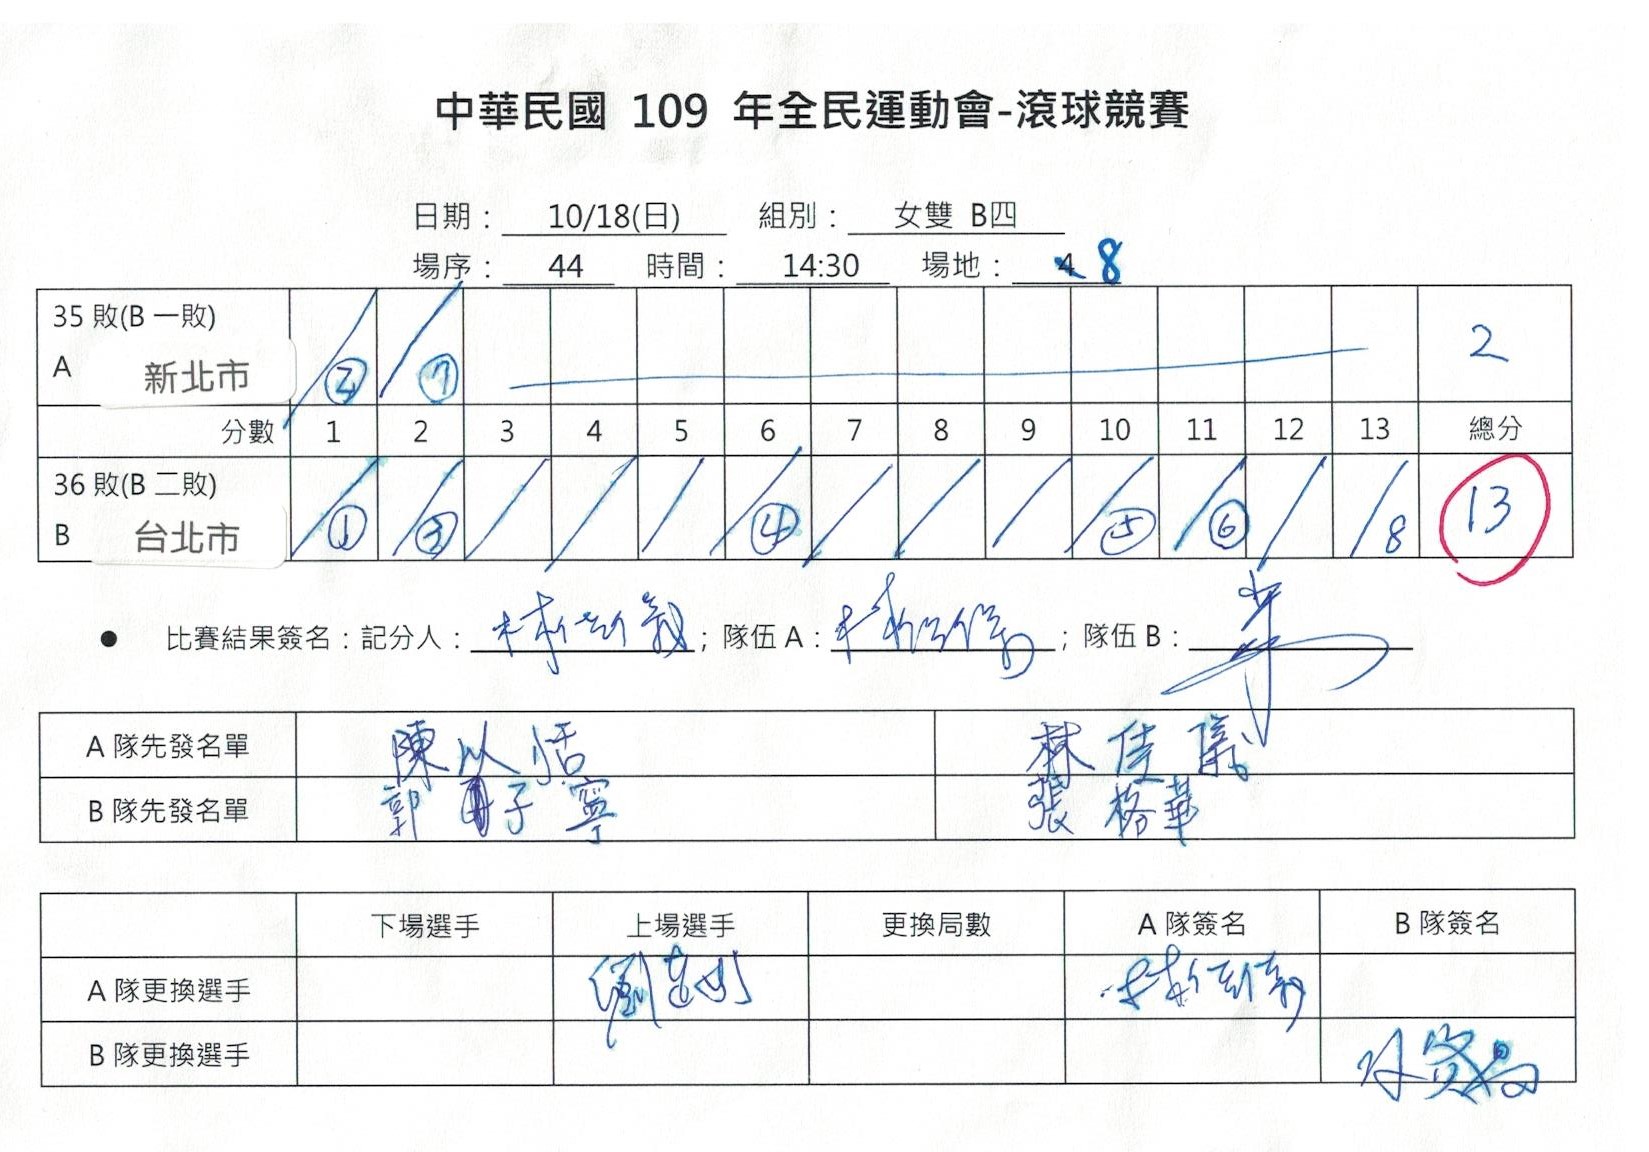 中華民國 109 年全民運動會-滾球競賽
日期： 10/18(日) 組別： 女雙 B四
場序： 44 時間： 14:30 場地： 4 8
35 敗(B 一敗)
A 新北市 ② ⑦ 2
分數 1 2 3 4 5 6 7 8 9 10 11 12 13 總分
36 敗(B 二敗)
B 台北市 ① ③ ④ ⑤ ⑥ 8 13
● 比賽結果簽名：記分人： ；隊伍 A： ；隊伍 B：
A 隊先發名單 陳以恬 林佳儀
B 隊先發名單 郭子寧 張格華
下場選手 上場選手 更換局數 A 隊簽名 B 隊簽名
A 隊更換選手
B 隊更換選手